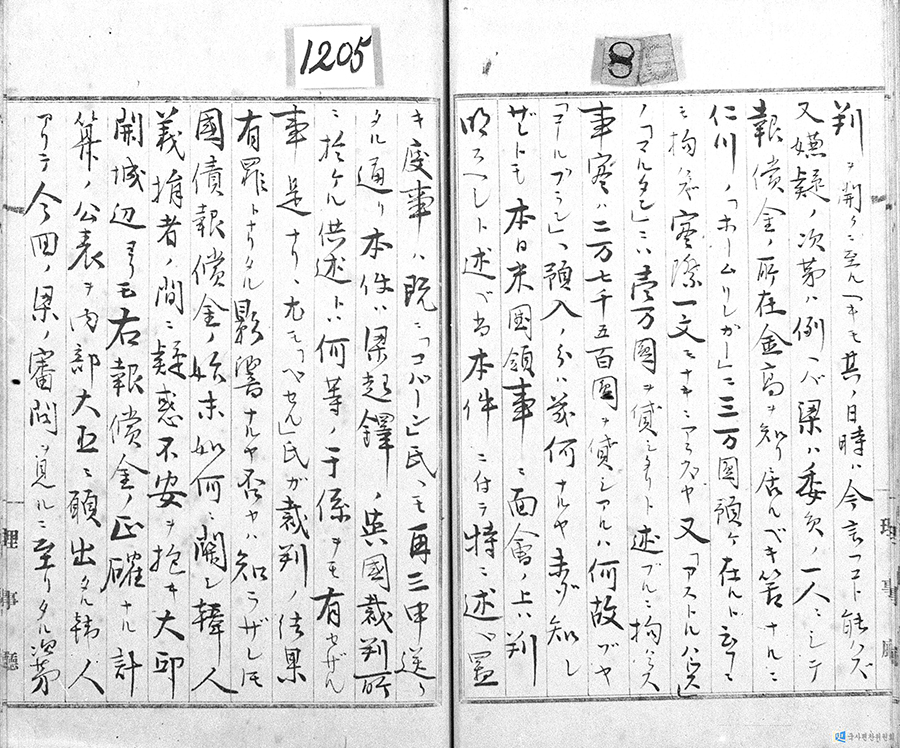 1205
8
判ヲ開クニ至ル可キモ其ノ日時ハ今言フコト能ハズ
又嫌疑ノ次第ハ例ヘバ梁ハ委員ノ一人ニシテ
報償金ノ所在金高ヲ知リ居ルベキ筈ナルニ
仁川ノ「ホームリンガー」ニ三万圓預ケ在ルト云フニ
モ拘ハラズ実際一文モナキニアラズヤ又「アストルハウス」
ノ「マルタン」ニハ壱万圓ヲ貸シタリト述ブルニ拘ハラズ
事実ハ二万七千五百圓ヲ貸シアルハ何故ゾヤ
「コールブラン」ヘ預入ノ分ハ幾何ナルヤ未ダ知レ
ザレトモ本日米國領事ニ面會ノ上ハ判
明スヘシト述ベ尚本件ニ付テ特ニ述ベ置
キ度事ハ既ニ「コバーン」氏ヘモ再三申送リ
タル通リ本件ハ梁起鐸ノ英國裁判所
ニ於ケル供述トハ何等ノ干係ヲモ有セザル
事是ナリ尤モ「ベセル」氏ガ裁判ノ結果
有罪トナリタル影響ナルヤ否ヤハ知ラザレモ
國債報償金ノ始末如何ニ関シ韓人
義捐者ノ間ニ疑惑不安ヲ抱キ大邱
開城辺ヨリモ右報償金ノ正確ナル計
算ノ公表ヲ内部大臣ニ願出タル韓人
アリテ今回ノ梁ノ審問ヲ見ルニ至リタル次第
理事廳
理事廳
국사편찬위원회